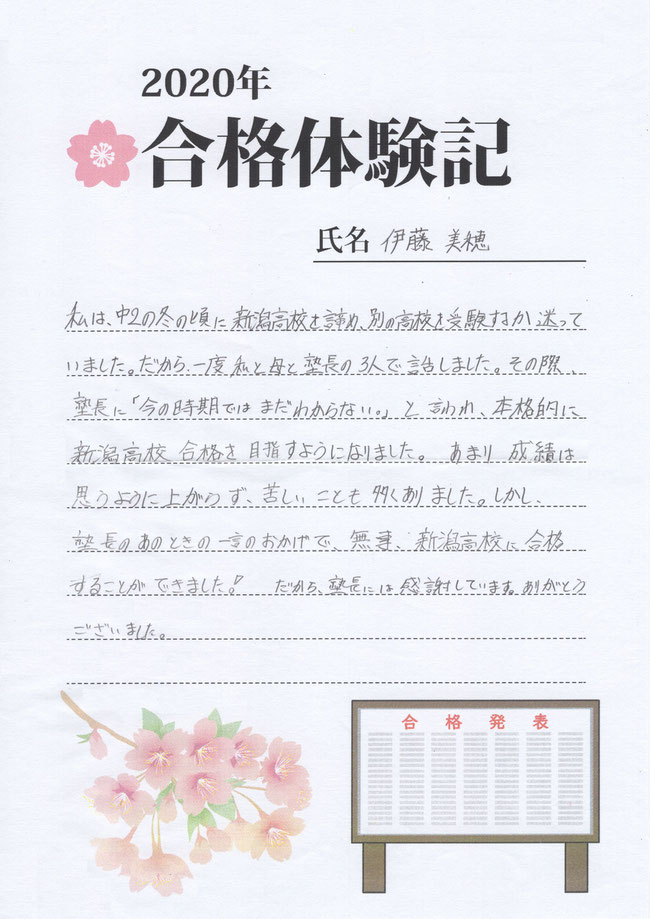 2020年
合格体験記
氏名 伊藤 美穂
私は、中2の冬の頃に新潟高校を諦め、別の高校を受験するか迷って
いました。だから、一度私と母と塾長の3人で話しました。その際、
塾長に「今の時期ではまだわからない。」と言われ、本格的に
新潟高校合格を目指すようになりました。あまり成績は
思うように上がらず、苦しいことも多くありました。しかし、
塾長のあのときの一言のおかげで、無事、新潟高校に合格
することができました！ だから、塾長には感謝しています。ありがとう
ございました。
合格発表